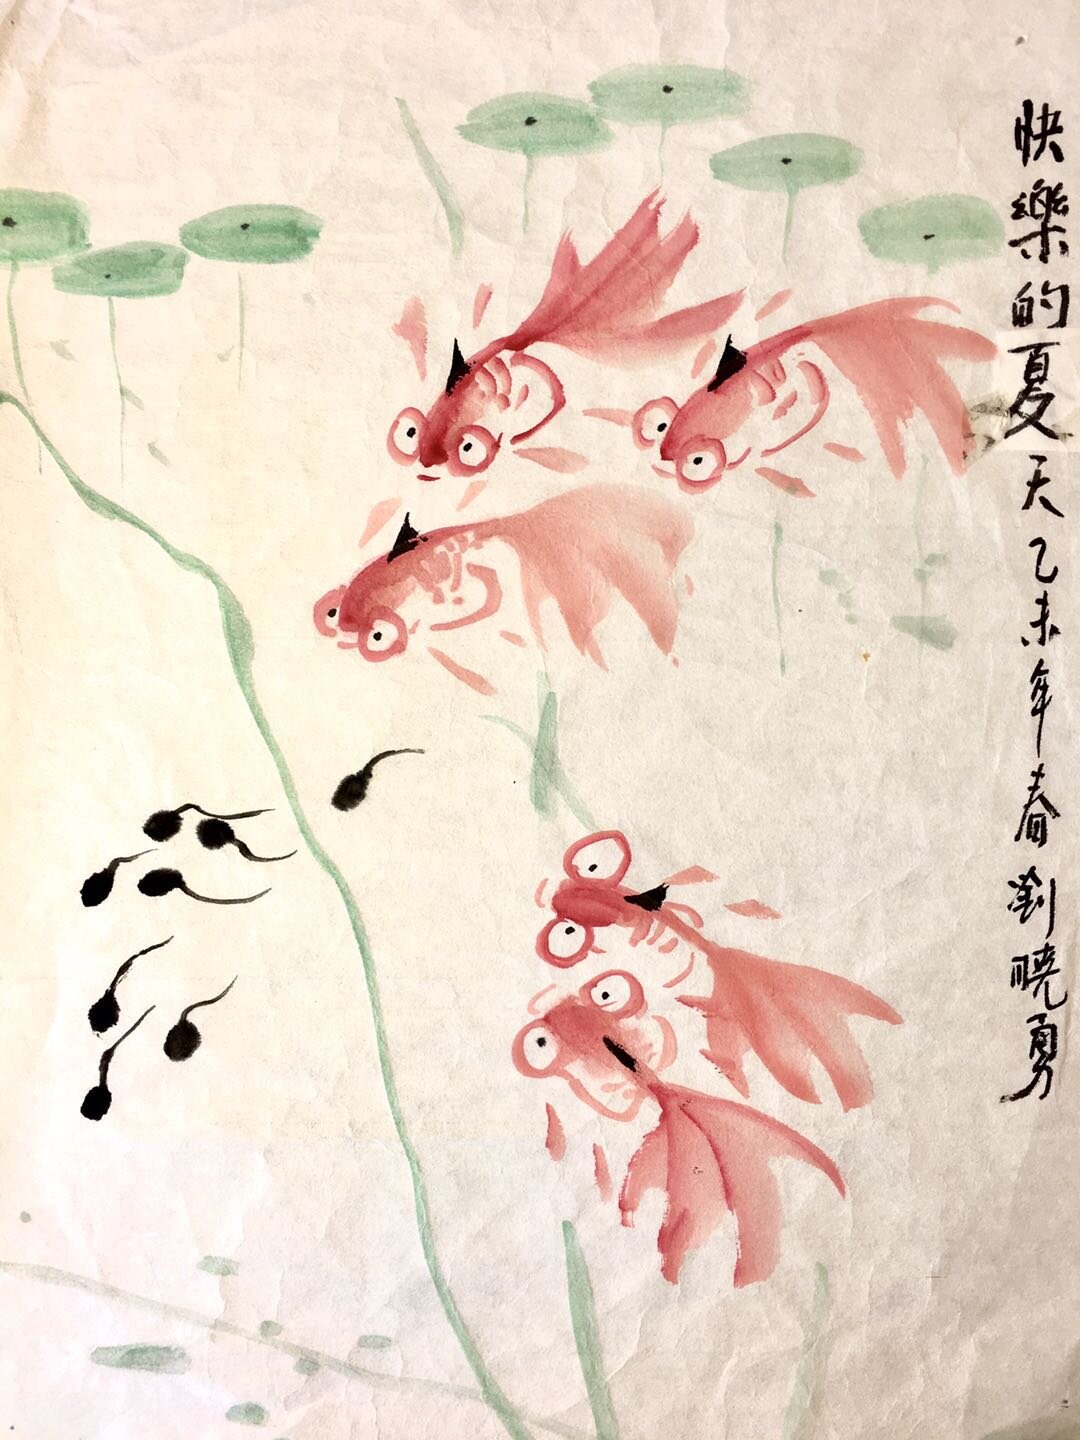 快樂的夏天乙未年春劉曉勇